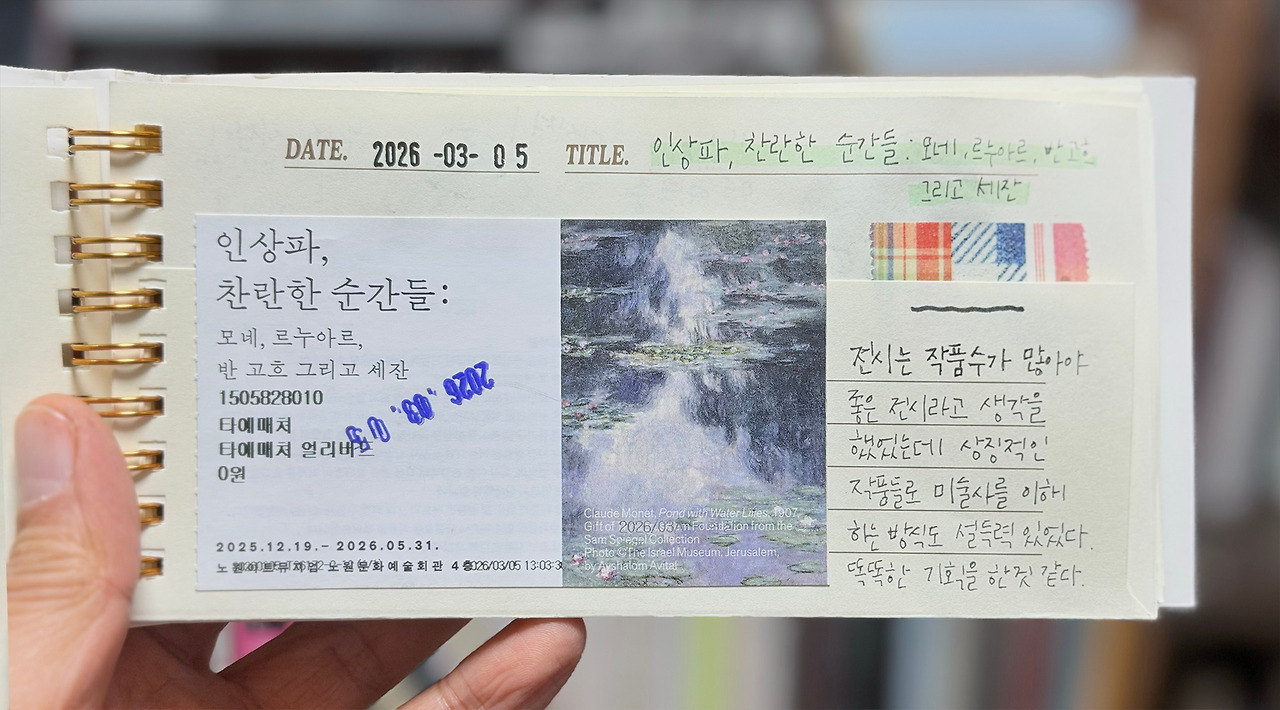 DATE. 2026 -03- 05 TITLE. 인상파, 찬란한 순간들: 모네, 르누아르, 반고흐
그리고 세잔
인상파,
찬란한 순간들:
모네, 르누아르,
반 고흐 그리고 세잔
1505828010
타예매처
타예매처 얼리버드
0원
2026.03.05
2025.12.19.– 2026.05.31.
노원문화예술회관 4층 2026/03/05 13:03:3
Claude Monet, Pond with Water Lilies, 1907,
Gift of 2026/03 Foundation from the
Sam Spiegel Collection
Photo © The Israel Museum, Jerusalem,
by Avshalom Avital
전시는 작품수가 많아야
좋은 전시라고 생각을
했었는데 상징적인
작품들로 미술사를 이해
하는 방식도 설득력 있었다.
똑똑한 기획을 한것 같다.